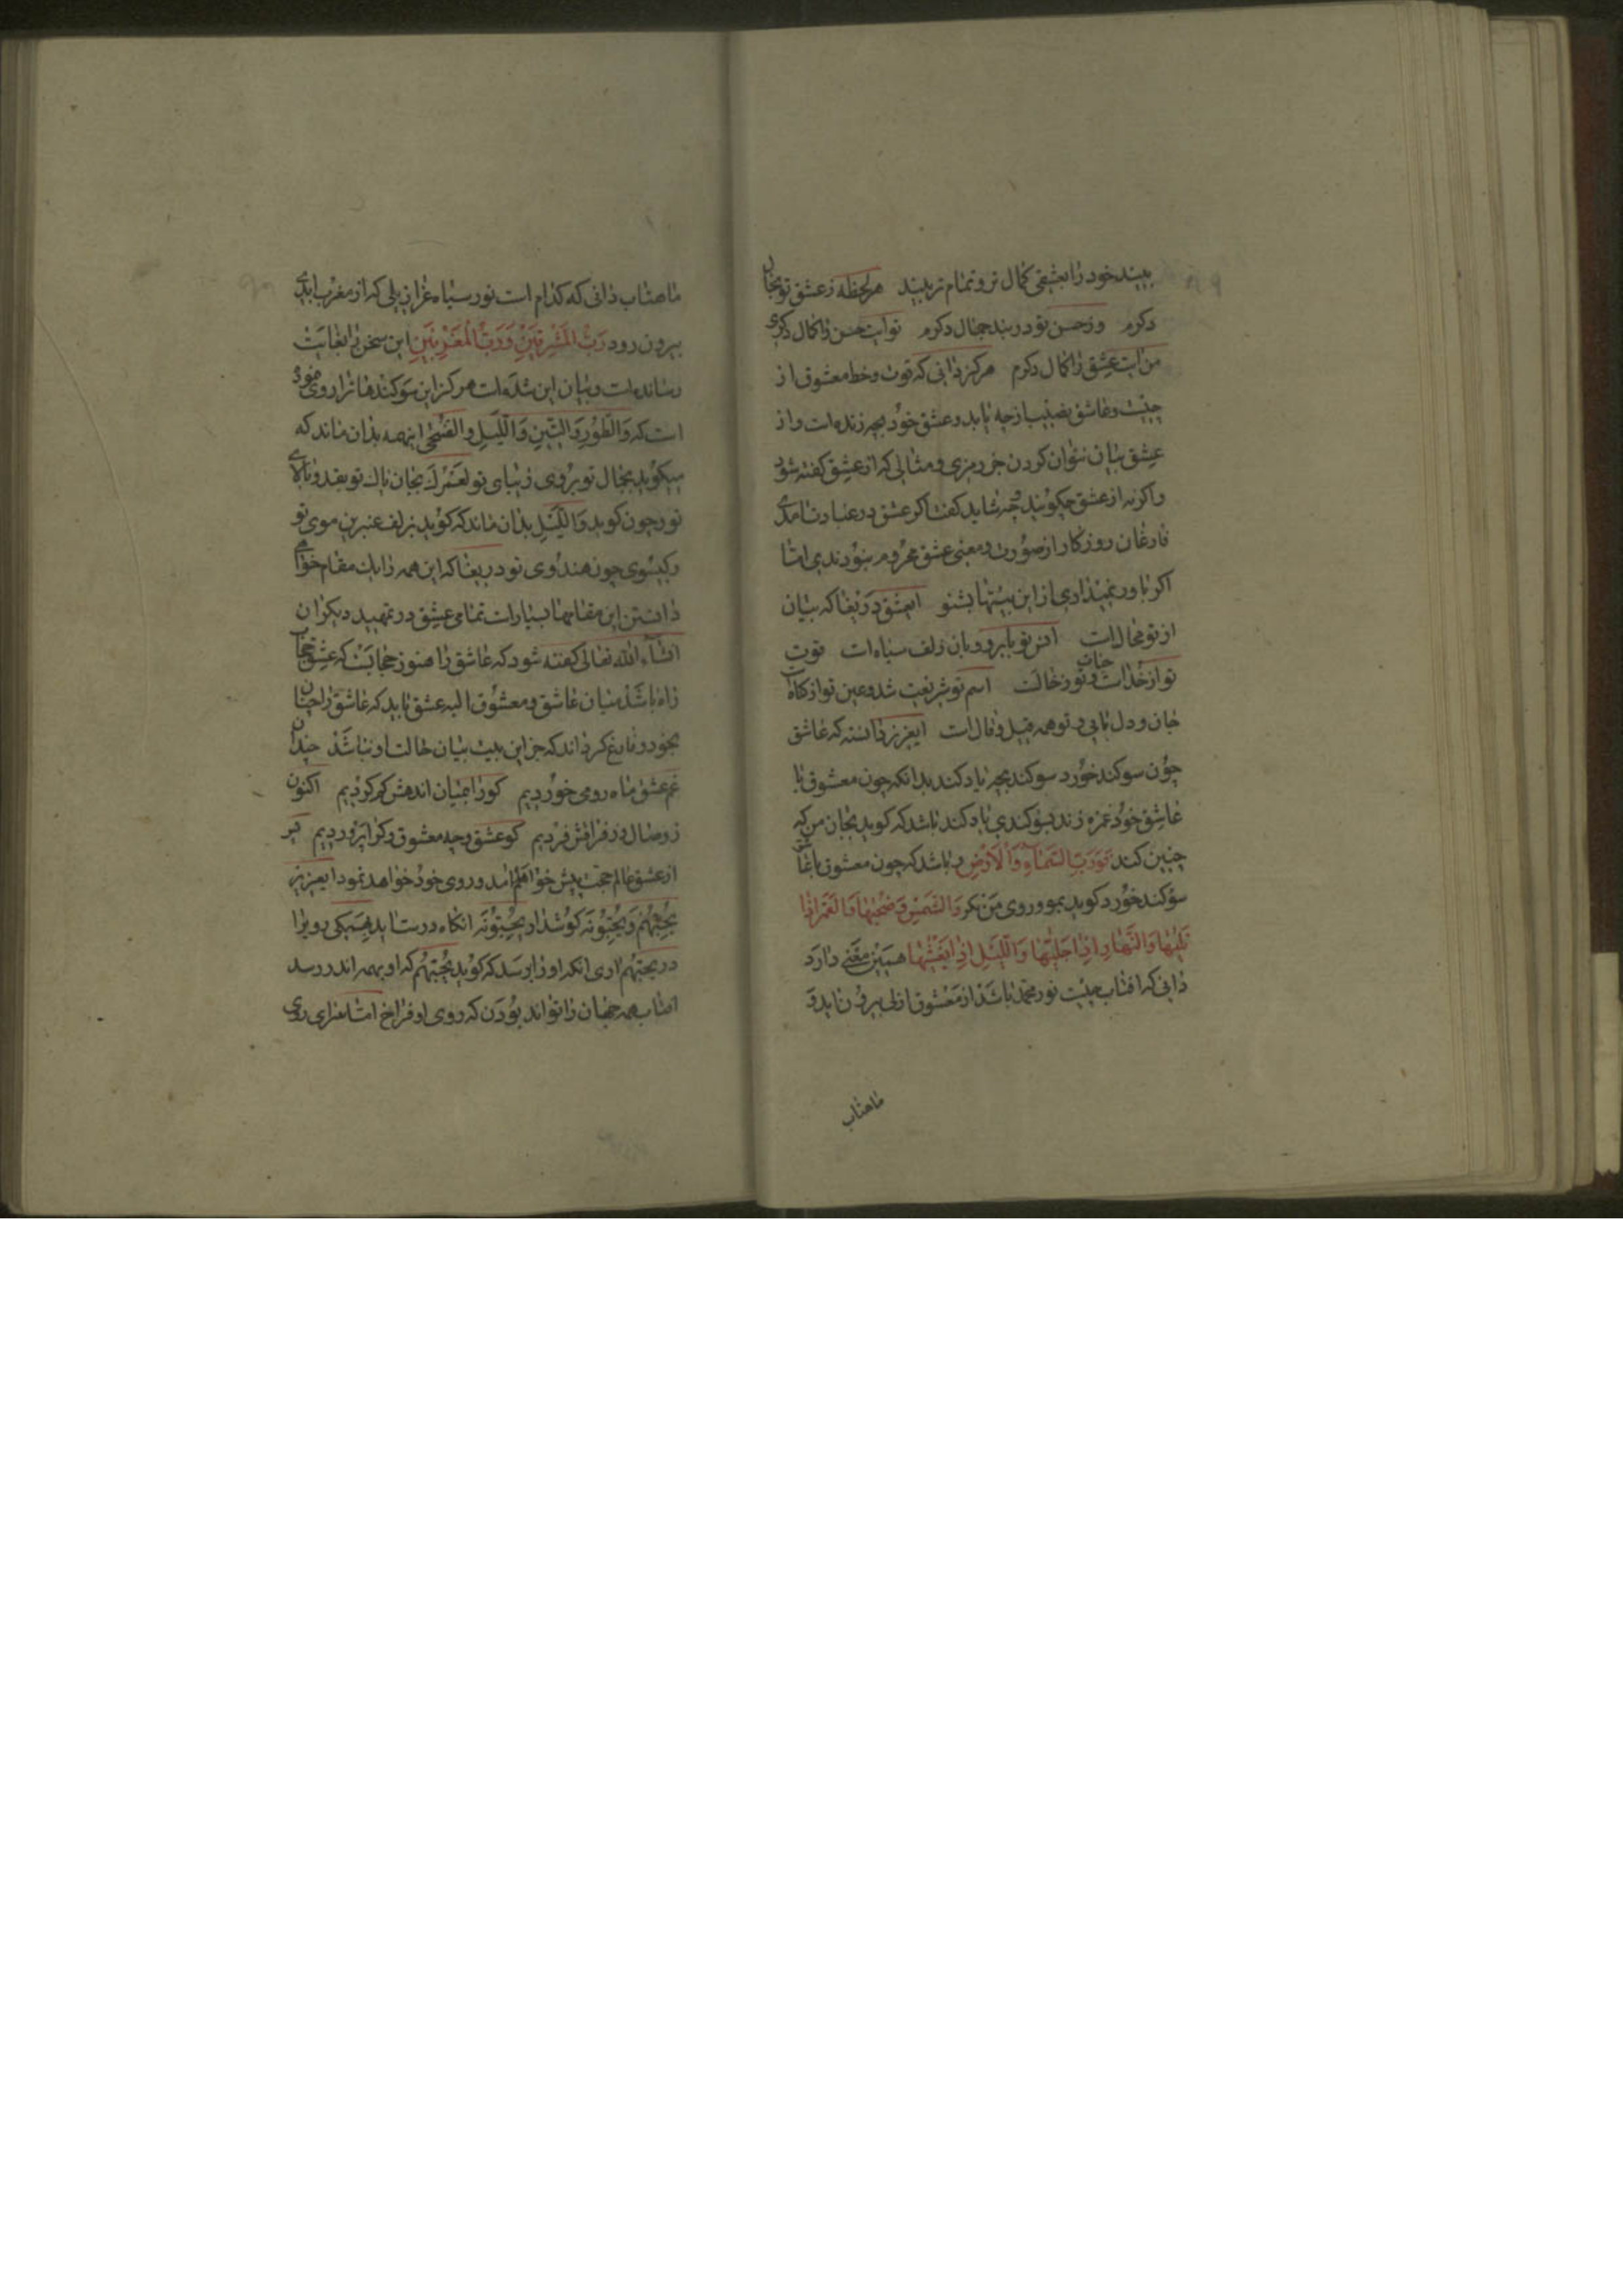 بیند خود را بعشقی کمال تر و تمام تر بیند هر لحظه ز عشق تو بجان
دکرم وز حسن تو در بند جمال دکرم تو آیت حسن را کمال دکری
من آیت عشق را کمال دکرم هرگز دانی که قوت و خط معشوق از
چیست و عاشق نصیب از چه یابد و عشق خود بچه زنده است و از
عشق بیان نتوان کردن جز رمزی و مثالی که از عشق گفته شود
و اگر نه از عشق چگویند و چه شاید گفت اگر عشق در عبارت آمدی
فارغان روزگار از صورت و معنی عشق محروم نبودندی اما
اگر باور نمیداری از این بیتها بشنو ای عشق دریغا که بیان
از تو محال است
تو از خد است و تو ز خالت اسم تو شریعت شد و عین تو
جان و دل مایی و تو همه قیل و قال است ای عزیز دانسته که عاشق
چون سوگند خورد سوگند بچه یاد کند بدانکه چون معشوق با
عاشق خود غمزه زند سوگندی یاد کند باشد که گوید بجان من که
چنین کند فَوَرَبِّ السَّمَاءِ وَالْاَرْضِ و باشد که چون معشوق با عاشق
سوگند خورد گوید بمو و روی من نگر وَالشَّمْسِ وَضُحٰیهَا وَالْقَمَرِ اِذَا
تَلٰیهَا وَالنَّهَارِ اِذَا جَلّٰیهَا وَاللَّیْلِ اِذَا یَغْشٰیهَا همین معنی دارد
دانی که آفتاب چیست نور محمد باشد از مشرق ازلی بیرون آید و
ماهتاب
ماهتاب دانی که کدام است نور سیاه عزازیلی که از مغرب ابدی
بیرون رود رَبُّ الْمَشْرِقَیْنِ وَرَبُّ الْمَغْرِبَیْنِ این سخن را بغایت
رسانده است و بیان این شده است هرگز این سوگندها ترا روی نموده
است که وَالطُّورِ وَالتّینِ وَاللَّیْلِ وَالضُّحٰی این همه بدان ماند که
میگوید بجمال تو بروی زیبای تو لَعَمْرُكَ بجان پاك تو بقد و بالای
تو و چون گوید وَاللَّیْلِ بدان ماند که گوید بزلف عنبرین موی تو
و گیسوی چون هندوی تو دریغا که این همه را باین مقام خوانی
دانستن این مقامها بسیار است تمامی عشق در تمهید دیگران
انشاء الله تعالی گفته شود که عاشق را هنوز حجابست که عشق حجاب
راه باشد میان عاشق و معشوق البه عشق باید که عاشق را چنان
بیخود و فارغ گرداند که جز این بیت بیان حالت او نباشد چندان
غم عشق ماه رویی خوردیم کو را بمیان اندهش گم کردیم اکنون
ز وصال و ز فراقش فردیم کو عشق و چه معشوق و کرا پروردیم پس
از عشق عالم حجت پیش خواهم آمد و روی خود خواهد نمود ای عزیز
یُحِبُّهُمْ وَیُحِبُّونَهُ گوش دار یُحِبُّونَهُ آنگاه درست آید همگی رو بر او
در یُحِبُّهُمْ آری آنگه او را برسد که گوید یُحِبُّهُمْ که او بهمه اندر رسد
آفتاب همه جهان را تواند بودن که روی او فراخ است اما سرای روی